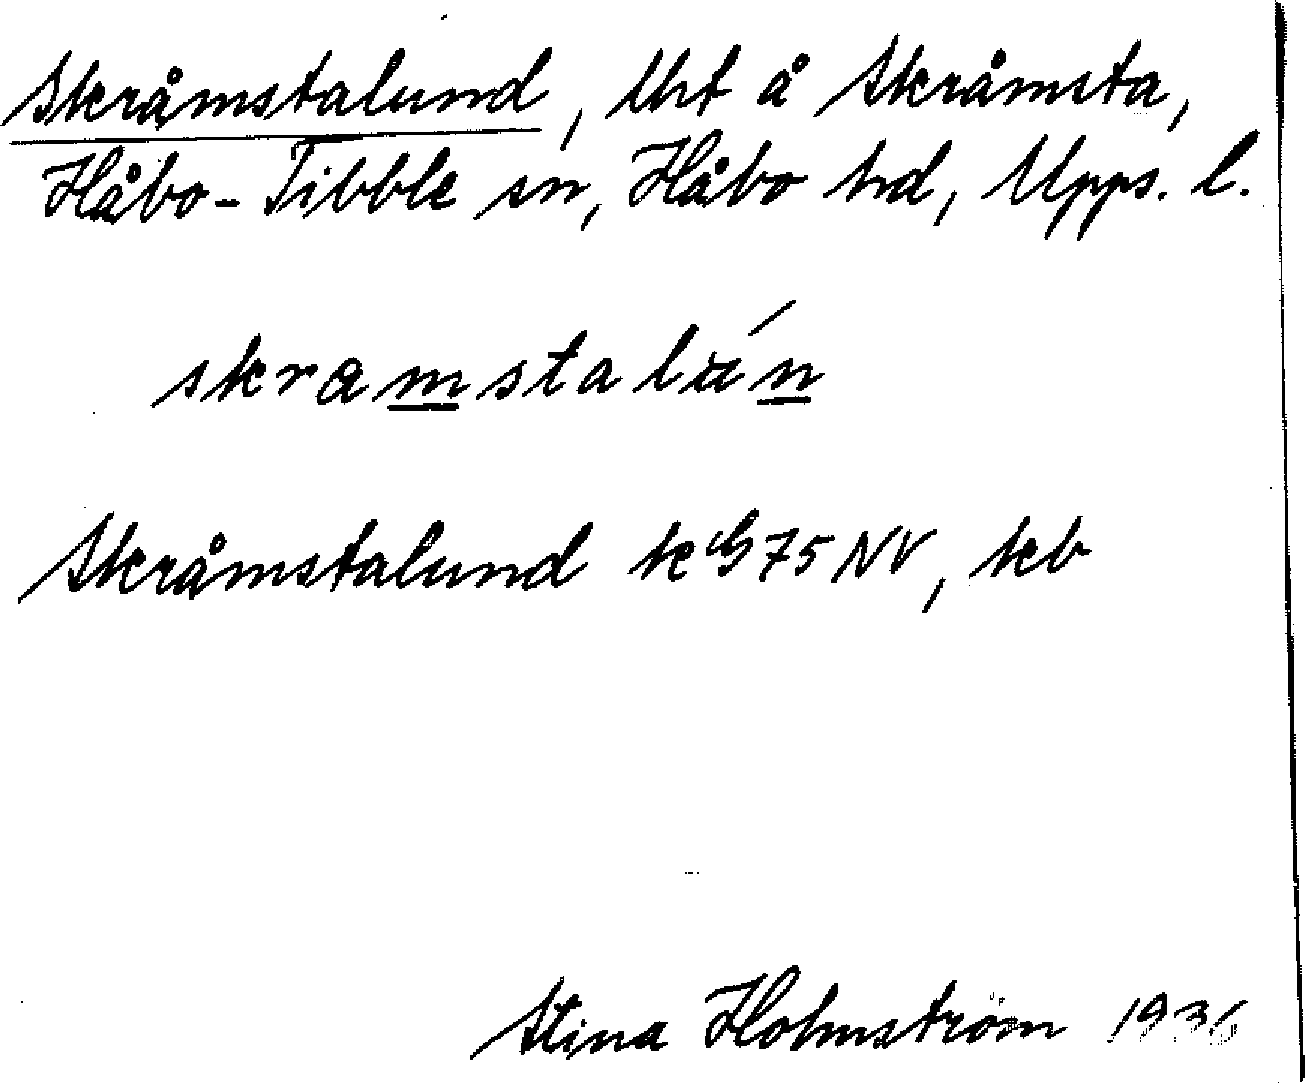 Skråmstalund, Uht å Skråmsta,
Håbo-Tibble sn, Håbo hd, Upps. l.
skramstalún
Skråmstalund kG75NV, kb
Stina Holmström 1936